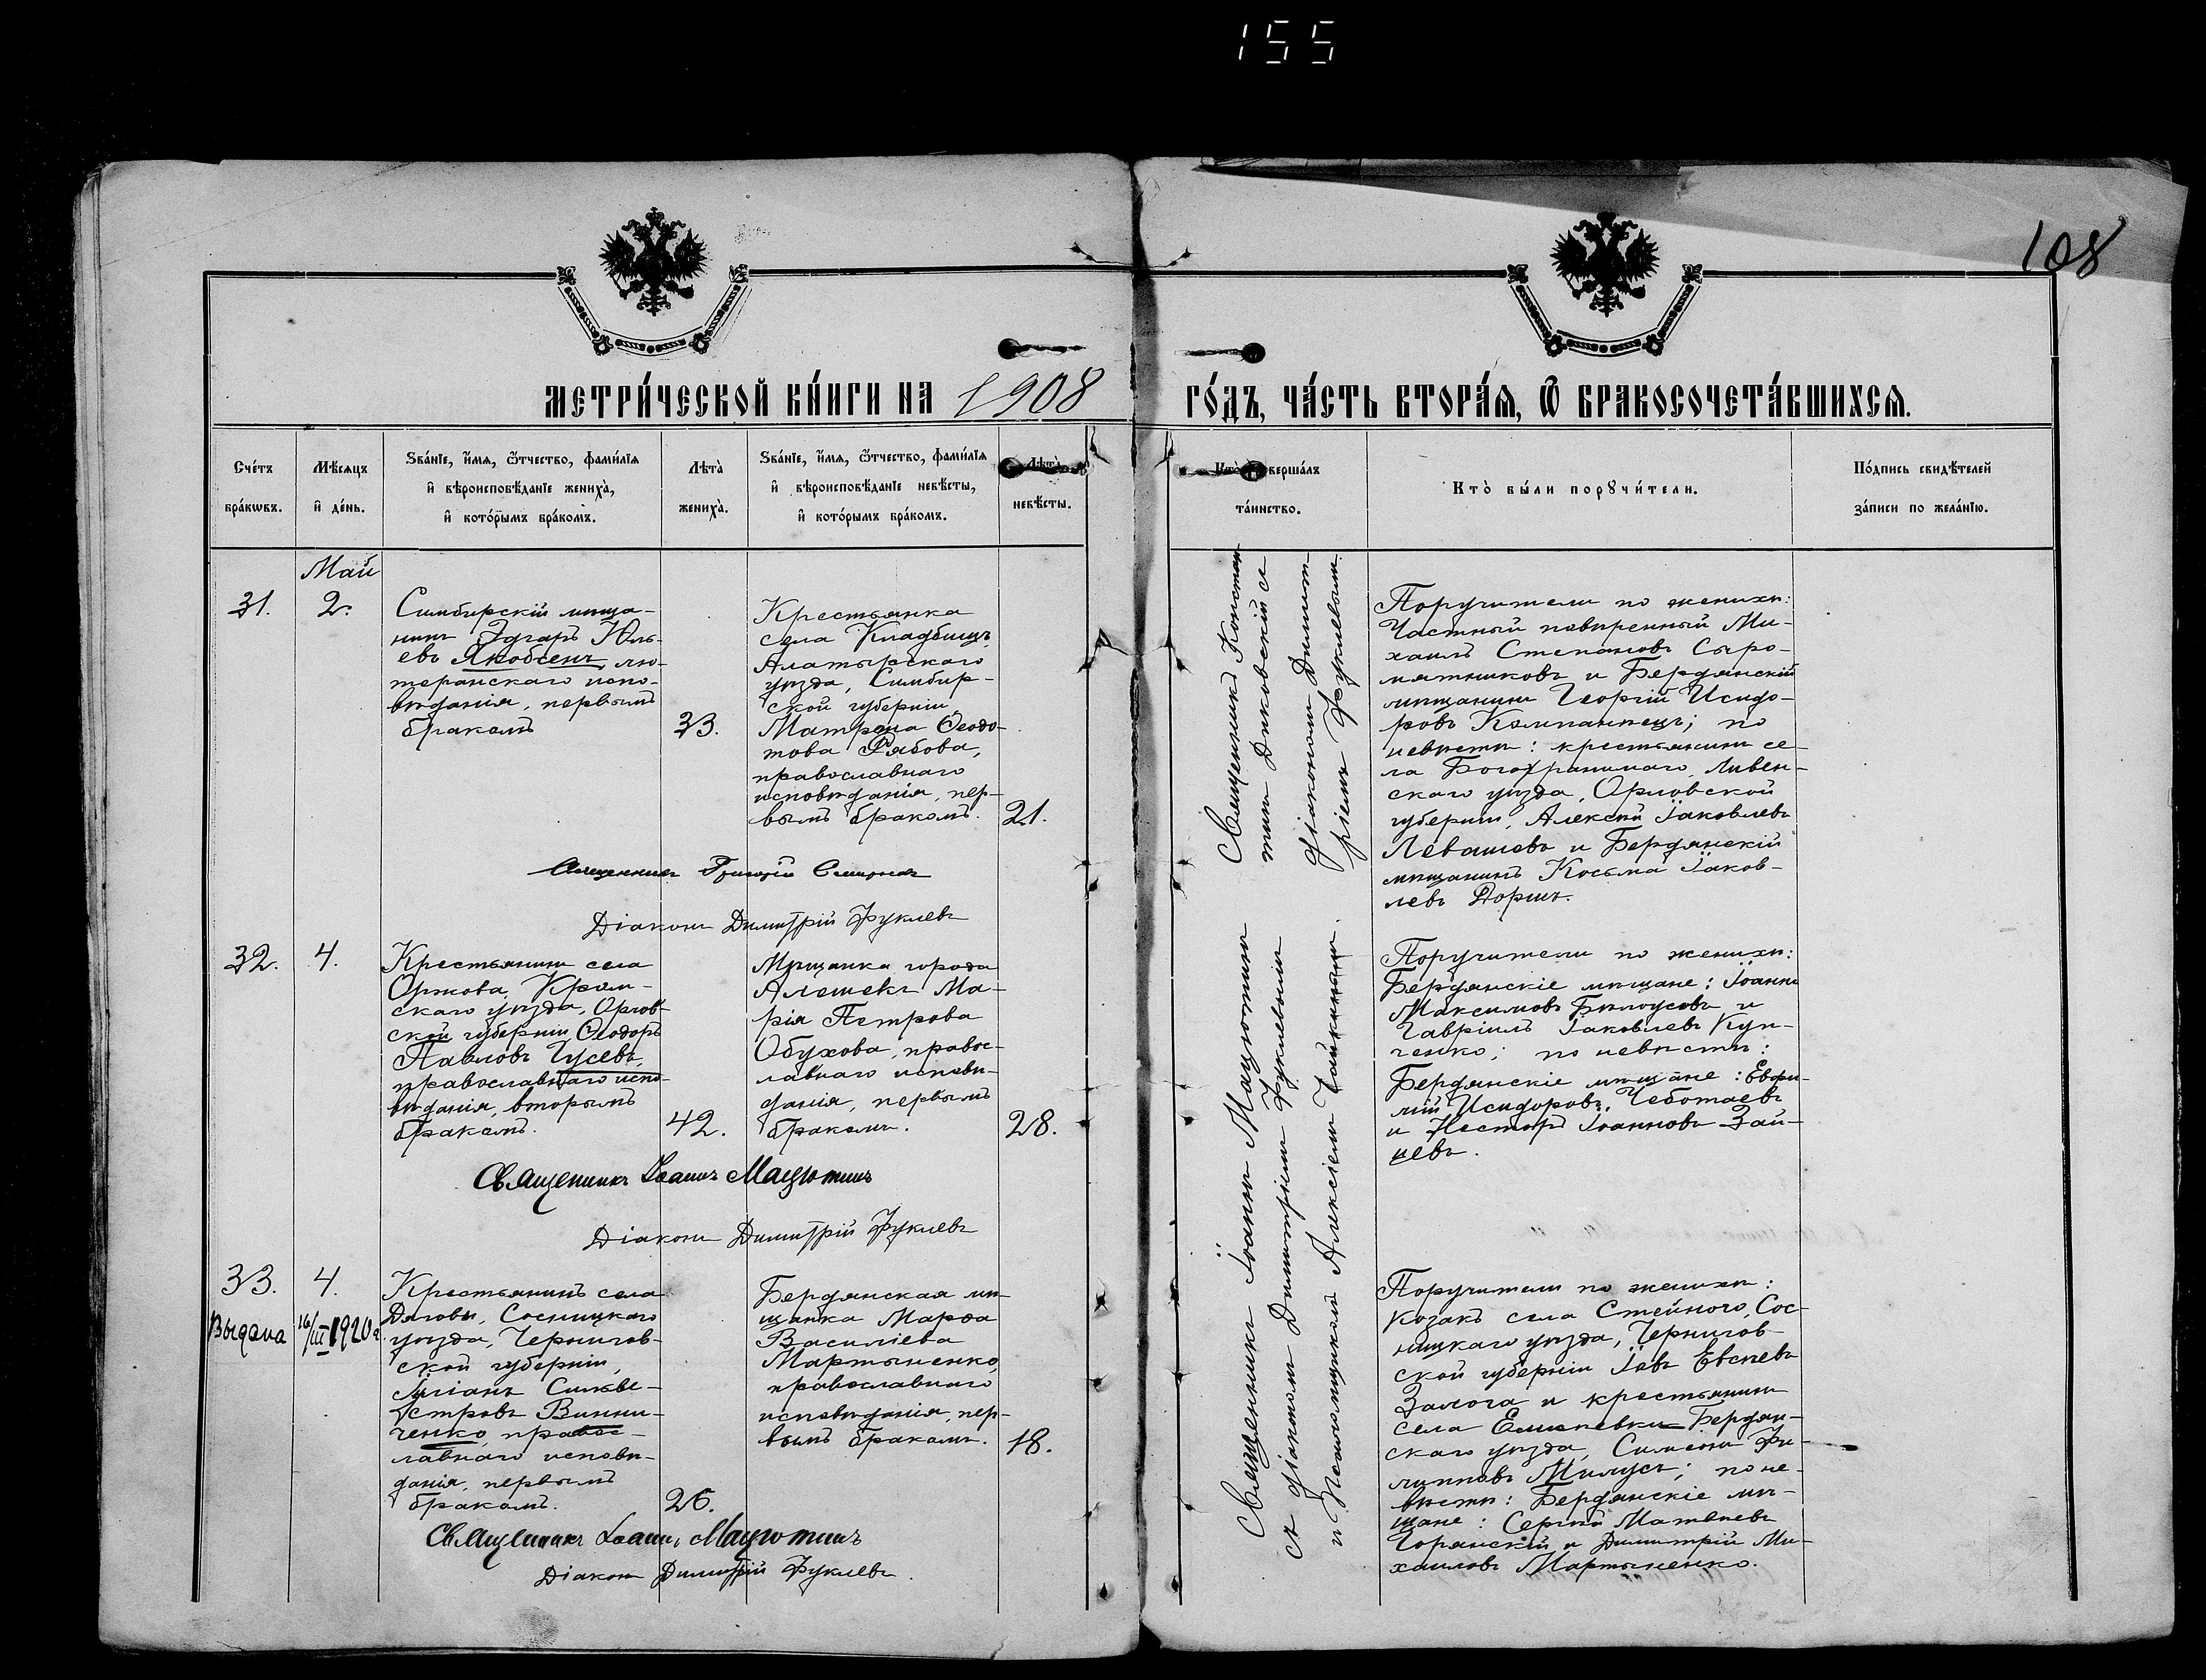 155
108
МЕТРИ́ЧЕСКОЙ КНИ́ГИ НА 1908 ГО́ДЪ, ЧА́СТЬ ВТОРА́Я, Ѿ БРАКОСОЧЕТА́ВШИХСЯ.
Сче́тъ
бра́кѡвъ.
Мѣ́сѧцъ
и҆ де́нь.
Ѕва́нїе, и҆́мѧ, ѻ҆́тчество, фами́лїѧ
и҆ вѣроисповѣ́данїе жениха̀,
и҆ кото́рымъ бра́комъ.
Лѣ́та
жениха̀.
Ѕва́нїе, и҆́мѧ, ѻ҆́тчество, фами́лїѧ
и҆ вѣроисповѣ́данїе невѣ́сты,
и҆ кото́рымъ бра́комъ.
Лѣ́та
невѣ́сты.
Кто̀ соверша́лъ
та́инство.
Кто̀ бы́ли порꙋчи́тели.
По́дпись свидѣ́телей
за́писи по жела́нїю.
Май
31.
2.
Симбирскій мѣща-
нинъ Эдгаръ Юль-
евъ Якобсенъ, лю-
теранскаго испо-
вѣданія, первымъ
бракомъ
33.
Крестьянка
села Кладбищъ,
Алатырскаго
уѣзда, Симбир-
ской губерніи,
Матрона Ѳеодо-
това Рябова,
православнаго
исповѣданія, пер-
вымъ бракомъ.
21.
Священникъ Констан-
тинъ Диковскій съ
діакономъ Димит-
ріемъ Фуклевымъ.
Поручители по женихѣ:
Частный повѣренный Ми-
хаилъ Степановъ Сыро-
мятниковъ и Бердянскій
мѣщанинъ Георгій Исидо-
ровъ Компанеецъ; по
невѣстѣ: крестьянинъ се-
ла Богохранимаго, Ливен-
скаго уѣзда, Орловской
губерніи, Алексѣй Іаковлевъ
Левашовъ и Бердянскій
мѣщанинъ Косьма Іаков-
левъ Доршъ.
Священникъ Григорій
Діаконъ Димитрій Фуклевъ
32.
4.
Крестьянинъ села
Оржова, Кром-
скаго уѣзда, Орлов-
ской губерніи Ѳеодоръ
Павловъ Гусевъ,
православнаго испо-
вѣданія, вторымъ
бракомъ.
42.
Мѣщанка города
Алешекъ Ма-
рія Петрова
Обухова, правос-
лавнаго исповѣ-
данія, первымъ
бракомъ.
28.
Поручители по женихѣ:
Бердянскіе мѣщане: Іоаннъ
Максимовъ Бѣлоусовъ и
Гавріилъ Іаковлевъ Куп-
ченко; по невѣстѣ:
Бердянскіе мѣщане: Евфи-
мій Исидоровъ Чеботаевъ
и Несторъ Іоанновъ Зай-
цевъ.
Священникъ Іоаннъ Мацютинъ
Діаконъ Димитрій Фуклевъ
Священникъ Іоаннъ Мацютинъ
съ діакономъ Димитріемъ Фуклевымъ
и Псаломщикомъ Алексіемъ
33.
Выдана
4.
16/III 1920 г.
Крестьянинъ села
Дяговы, Сосницкаго
уѣзда, Чернигов-
ской губерніи,
Іуліанъ Сильве-
стровъ Винни-
ченко, правос-
лавнаго исповѣ-
данія, первымъ
бракомъ.
26.
Бердянская мѣ-
щанка Марѳа
Василіева
Мартыненко,
православнаго
исповѣданія, пер-
вымъ бракомъ.
18.
Поручители по женихѣ:
Козакъ села Стейного, Сос-
ницкаго уѣзда, Чернигов-
ской губерніи Іовъ Евсѣевъ
Залога и крестьянинъ
села Елисѣевки Бердян-
скаго уѣзда, Симеонъ Фи-
липповъ Милусъ; по не-
вѣстѣ: Бердянскіе мѣ-
щане: Сергій Матвѣевъ
Горянскій и Димитрій Ми-
хаиловъ Мартыненко.
Священникъ Іоаннъ Мацютинъ
Діаконъ Димитрій Фуклевъ.